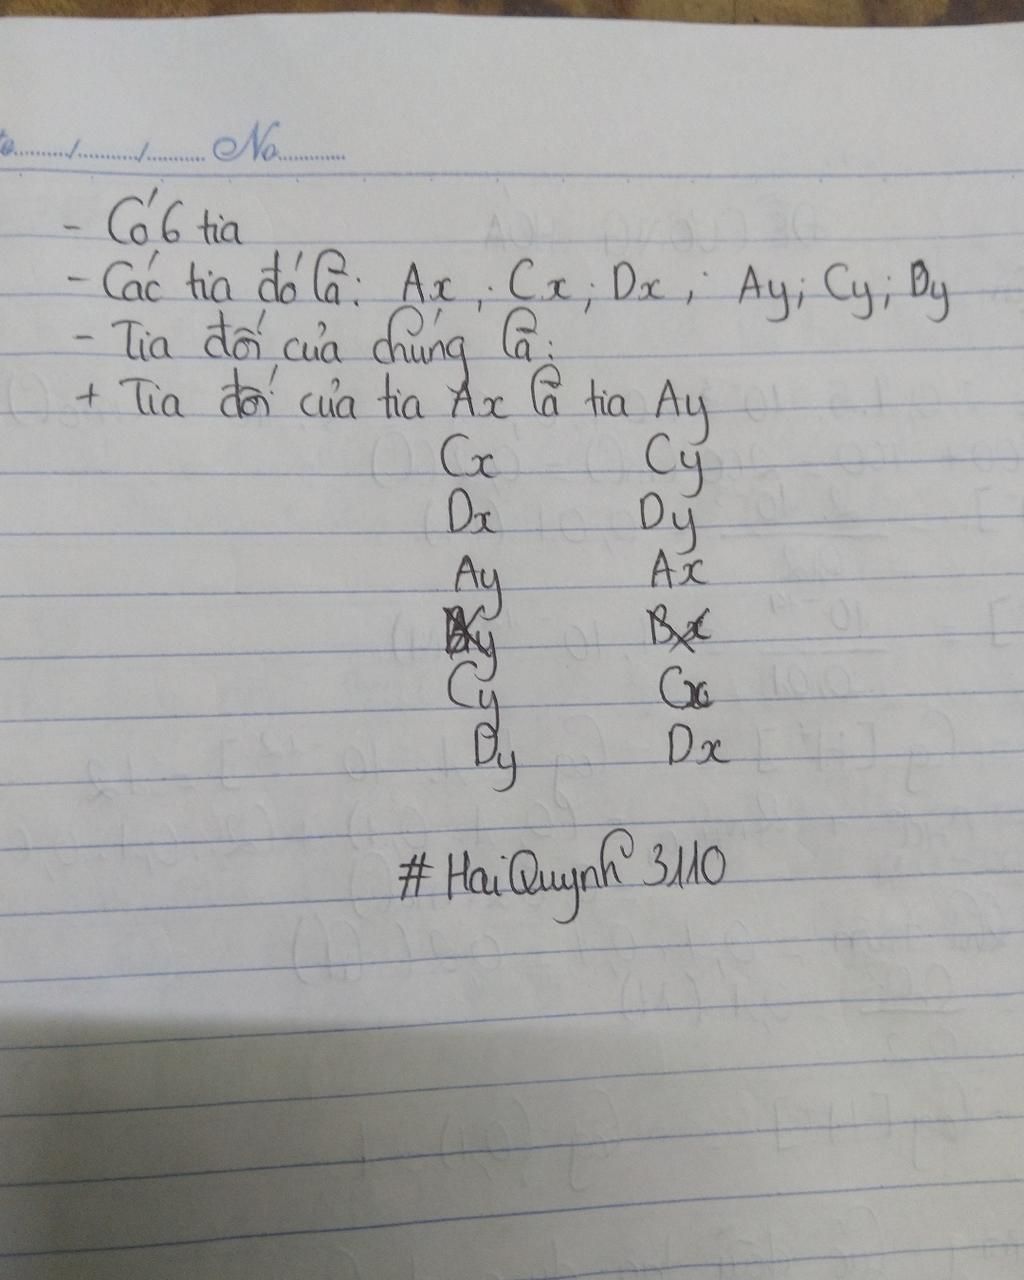 No
- Có 6 tia
- Các tia đó là: Ax ; Cx ; Dx ; Ay ; Cy ; Dy
- Tia đối của chúng là:
+ Tia đối của tia Ax là tia Ay
Cx Cy
Dx Dy
Ay Ax
Cy Cx
Dy Dx
# HaiQuynh 3110